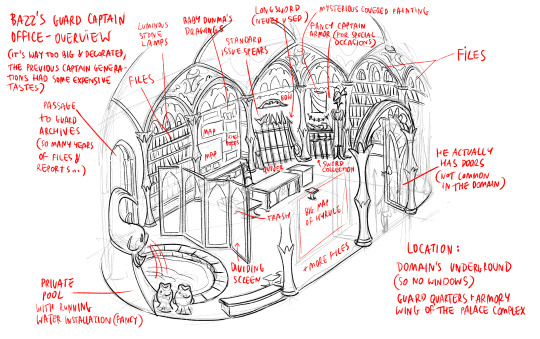 BAZZ'S GUARD CAPTAIN
OFFICE - OVERVIEW
(IT'S WAY TOO BIG & DECORATED,
THE PREVIOUS CAPTAIN GENERA-
TIONS HAD SOME EXPENSIVE
TASTES)
LUMINOUS
STONE
LAMPS
BABY DUNMA'S
DRAWINGS
STANDARD
ISSUE SPEARS
LONGSWORD
(NEVER USED)
MYSTERIOUS COVERED PAINTING
FANCY CAPTAIN
ARMOR (FOR SPECIAL
OCCASIONS)
FILES
FILES
PASSAGE
TO GUARD
ARCHIVES
(SO MANY YEARS
OF FILES &
REPORTS...)
MAP
MAP
BOW
QUIVER
SWORD
COLLECTION
HE ACTUALLY
HAS DOORS
(NOT COMMON
IN THE DOMAIN)
TRASH
BIG MAP
OF HYRULE
DIVIDING
SCREEN
+ MORE FILES
PRIVATE
POOL
WITH RUNNING
WATER INSTALLATION (FANCY)
LOCATION:
DOMAIN'S UNDERGROUND
(SO NO WINDOWS)
GUARD QUARTERS + ARMORY
WING OF THE PALACE COMPLEX